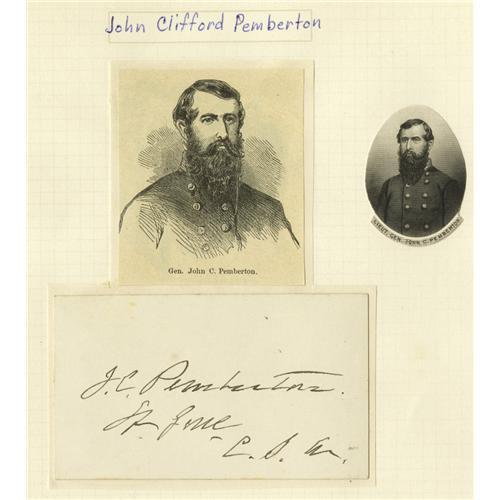 John Clifford Pemberton
Gen. John C. Pemberton.
LIEUT. GEN. JOHN C. PEMBERTON
J. C. Pemberton.
C. S. A.